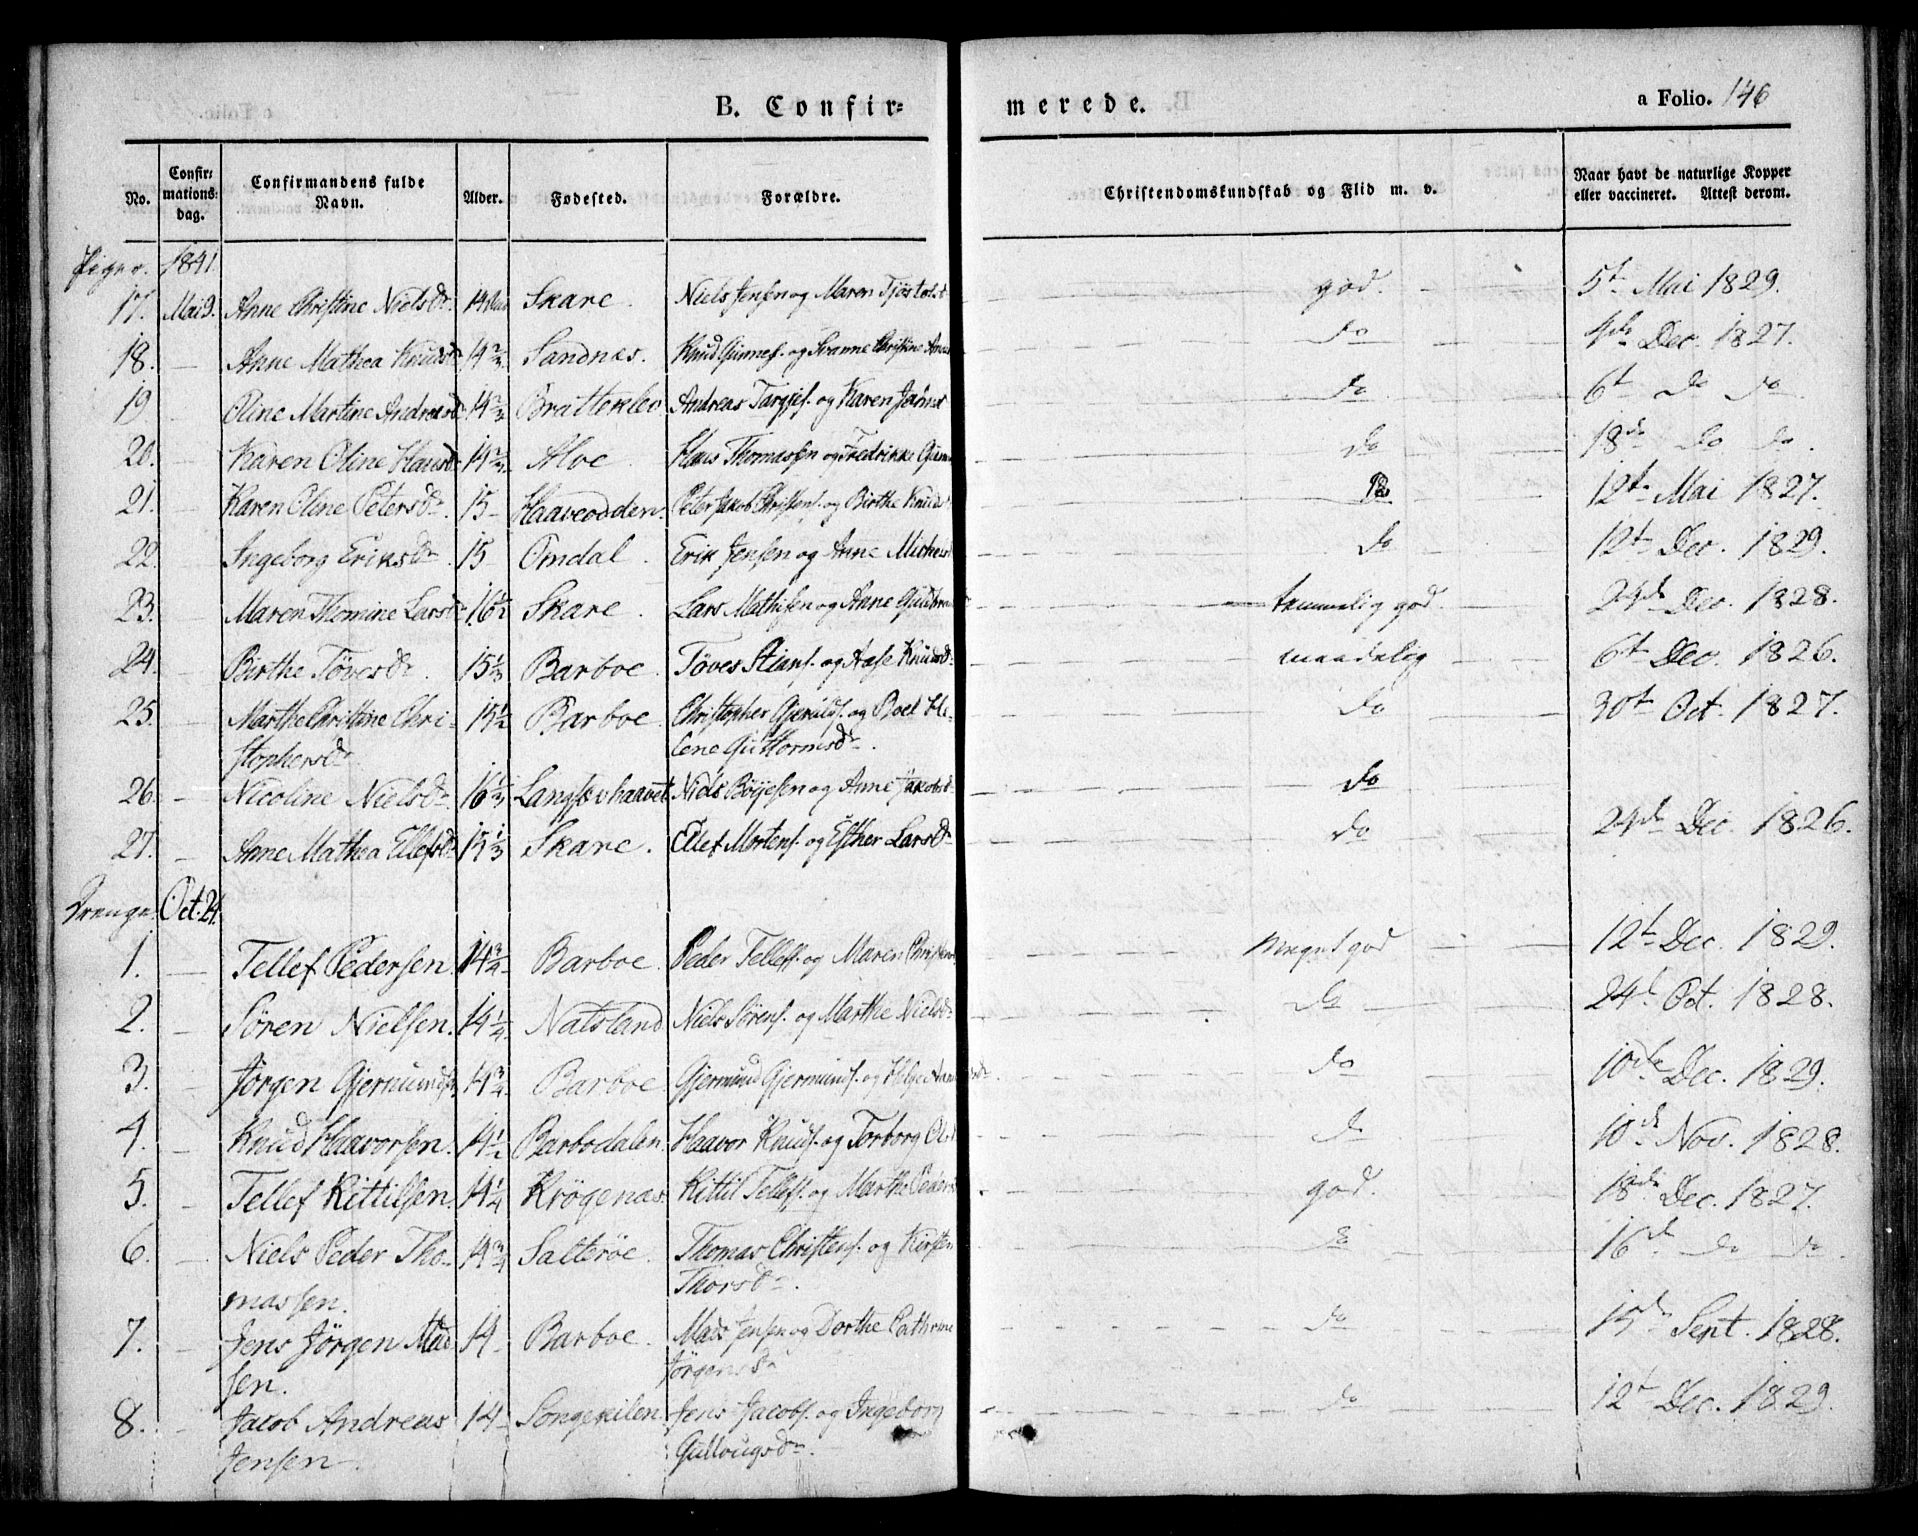 B. Confir= merede. a Folio. 146
No. Confir= mations= dag. Confirmandens fulde Navn. Alder. Fødested. Forældre. Christendomskundskab og Flid m. v. Naar havt de naturlige Kopper eller vaccineret. Attest derom.
Piger. 1841.
17. Mai 9. Anne Christine Nielsdr. 14 Skare. Niels Jensen og Maren god. 5t Mai 1829.
18. Anne Mathea Knudsdr 14 2/3 Sandnæs. Knud Gunnes. og Christine do 4de Dec. 1827.
19 Oline Martine Andreasd 14 2/3 Bratteklev Andreas Targjes. og Karen do 6t do do
20. Karen Oline Hansd 14 2/3 Alve Hans Thomassen og Fredrikke do 18de do do
21. Karen Oline Petersdr. 15 Haaveodden. Peter Jakob Christens. og Birthe Knudsd do 12te Mai 1827.
22. Ingeborg Eriksdr 15 Omdal. Erik Jensen og Anne do 12t Dec. 1829.
23. Maren Thomine Larsdr 16 1/2 Skare. Lars Mathisen og Anne temmelig god. 24de Dec. 1828.
24. Birthe Tövesdr. 15 1/3 Barboe. Töves Stians. og Aase Knudsdr maadelig 6t Dec. 1826.
25. Marthe Christine Chri- 15 1/2 Barboe. Christopher Gjerulds. og Boel He- do 30t Oct. 1827.
stophersdr lene Guttormsdr.
26. Nicoline Nielsdr. 16 1/3 Langsævhaavet Niels Böyesen og Anne Jakobsd do
27. Anne Mathea Ellefsdr 15 1/3 Skare. Ellef Mortens. og Esther Larsdr do 24de Dec. 1826.
Drenge. Oct. 24.
1. Tellef Pedersen. 14 3/4 Barboe. Peder Tellefs. og Maren Meget god 12t Dec. 1829.
2. Sören Nielsen. 14 1/4 Natsland Niels Sörens. og Marthe Nielsdr do 24d Oct. 1828.
3. Jörgen Gjermunds. 14 3/4 Barboe Gjermund Gjermunds. og Helge do 10de Dec. 1829.
4. Knud Haavorsen. 14 1/2 Barbodalen. Haavor Knuds. og Torborg Olsd do 10de Nov. 1828.
5. Tellef Kittilsen 14 1/4 Krögenæs. Kittil Tellefs. og Marthe Peders god. 18de Dec. 1827.
6. Niels Peder Tho- 14 3/4 Salteröe. Thomas Christens. og Kirsten do 16d do do
massen. Thorsdr.
7. Jens Jörgen Mad 14 Barboe. Mads Jensen og Dorthe Cathrine do 15de Sept. 1828.
sen. Jörgensdr
8. Jacob Andreas 14 Songekilen. Jens Jacobs. og Ingeborg do 12t Dec. 1829.
Jensen Gullougsdr.